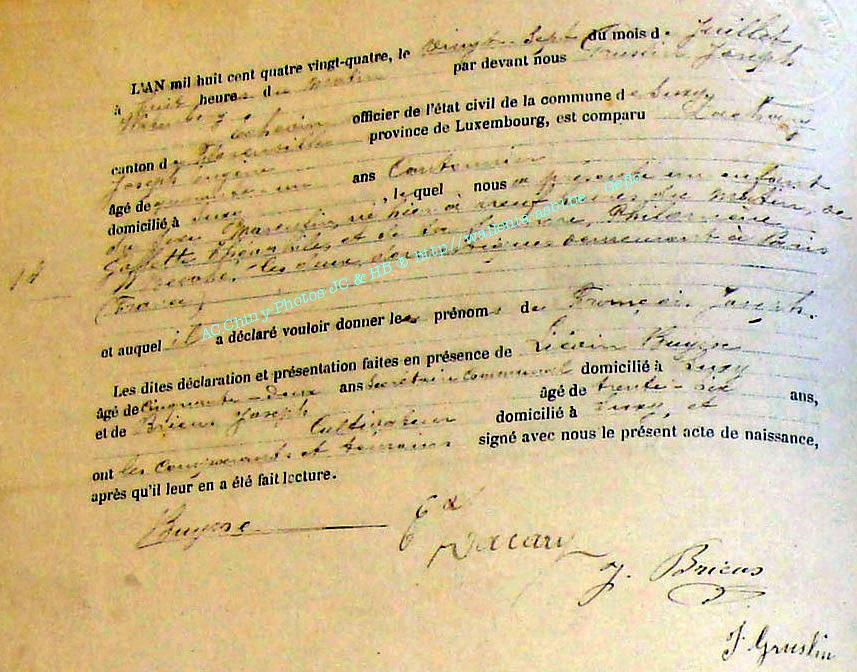 L'AN mil huit cent quatre vingt-quatre, le vingt-sept du mois de Juillet
à huit heures du matin par devant nous Gruslin Joseph
Echevin officier de l'état civil de la commune de Suxy
canton de Florenville province de Luxembourg, est comparu
Joseph
âgé de quarante un ans Cantonnier
domicilié à Suxy, lequel nous a présenté un enfant
du sexe Masculin, né hier à neuf heures du matin, de
et de Philomène
les deux demeurant à Paris
(France)
14
et auquel il a déclaré vouloir donner les prénoms de François Joseph.
Les dites déclaration et présentation faites en présence de Buysse
âgé de cinquante-deux ans Secrétaire Communal domicilié à Suxy
et de Brieus Joseph âgé de trente-six ans,
Cultivateur domicilié à Suxy, et
ont les comparants et témoins signé avec nous le présent acte de naissance,
après qu'il leur en a été fait lecture.
AC Chiny Photos JC & HB © http//wallonia-asbl.be - Geg
Buysse
J. Brieus
J Gruslin